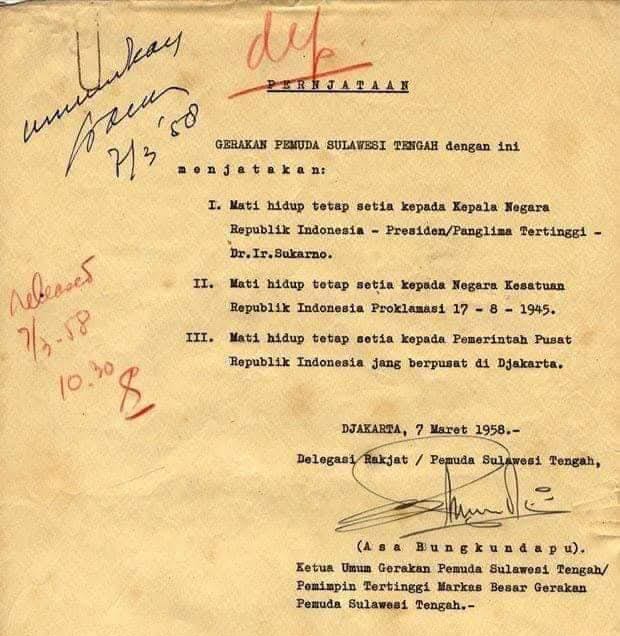 umumkan
7/3 '58
PERNJATAAN
GERAKAN PEMUDA SULAWESI TENGAH dengan ini
m e n j a t a k a n :
I. Mati hidup tetap setia kepada Kepala Negara
Republik Indonesia - Presiden/Panglima Tertinggi -
Dr.Ir.Sukarno.
II. Mati hidup tetap setia kepada Negara Kesatuan
Republik Indonesia Proklamasi 17 - 8 - 1945.
III. Mati hidup tetap setia kepada Pemerintah Pusat
Republik Indonesia jang berpusat di Djakarta.
released
7/3-58
10.30
DJAKARTA, 7 Maret 1958.-
Delegasi Rakjat / Pemuda Sulawesi Tengah,
(A s a  B u n g k u n d a p u).
Ketua Umum Gerakan Pemuda Sulawesi Tengah/
Pemimpin Tertinggi Markas Besar Gerakan
Pemuda Sulawesi Tengah.-